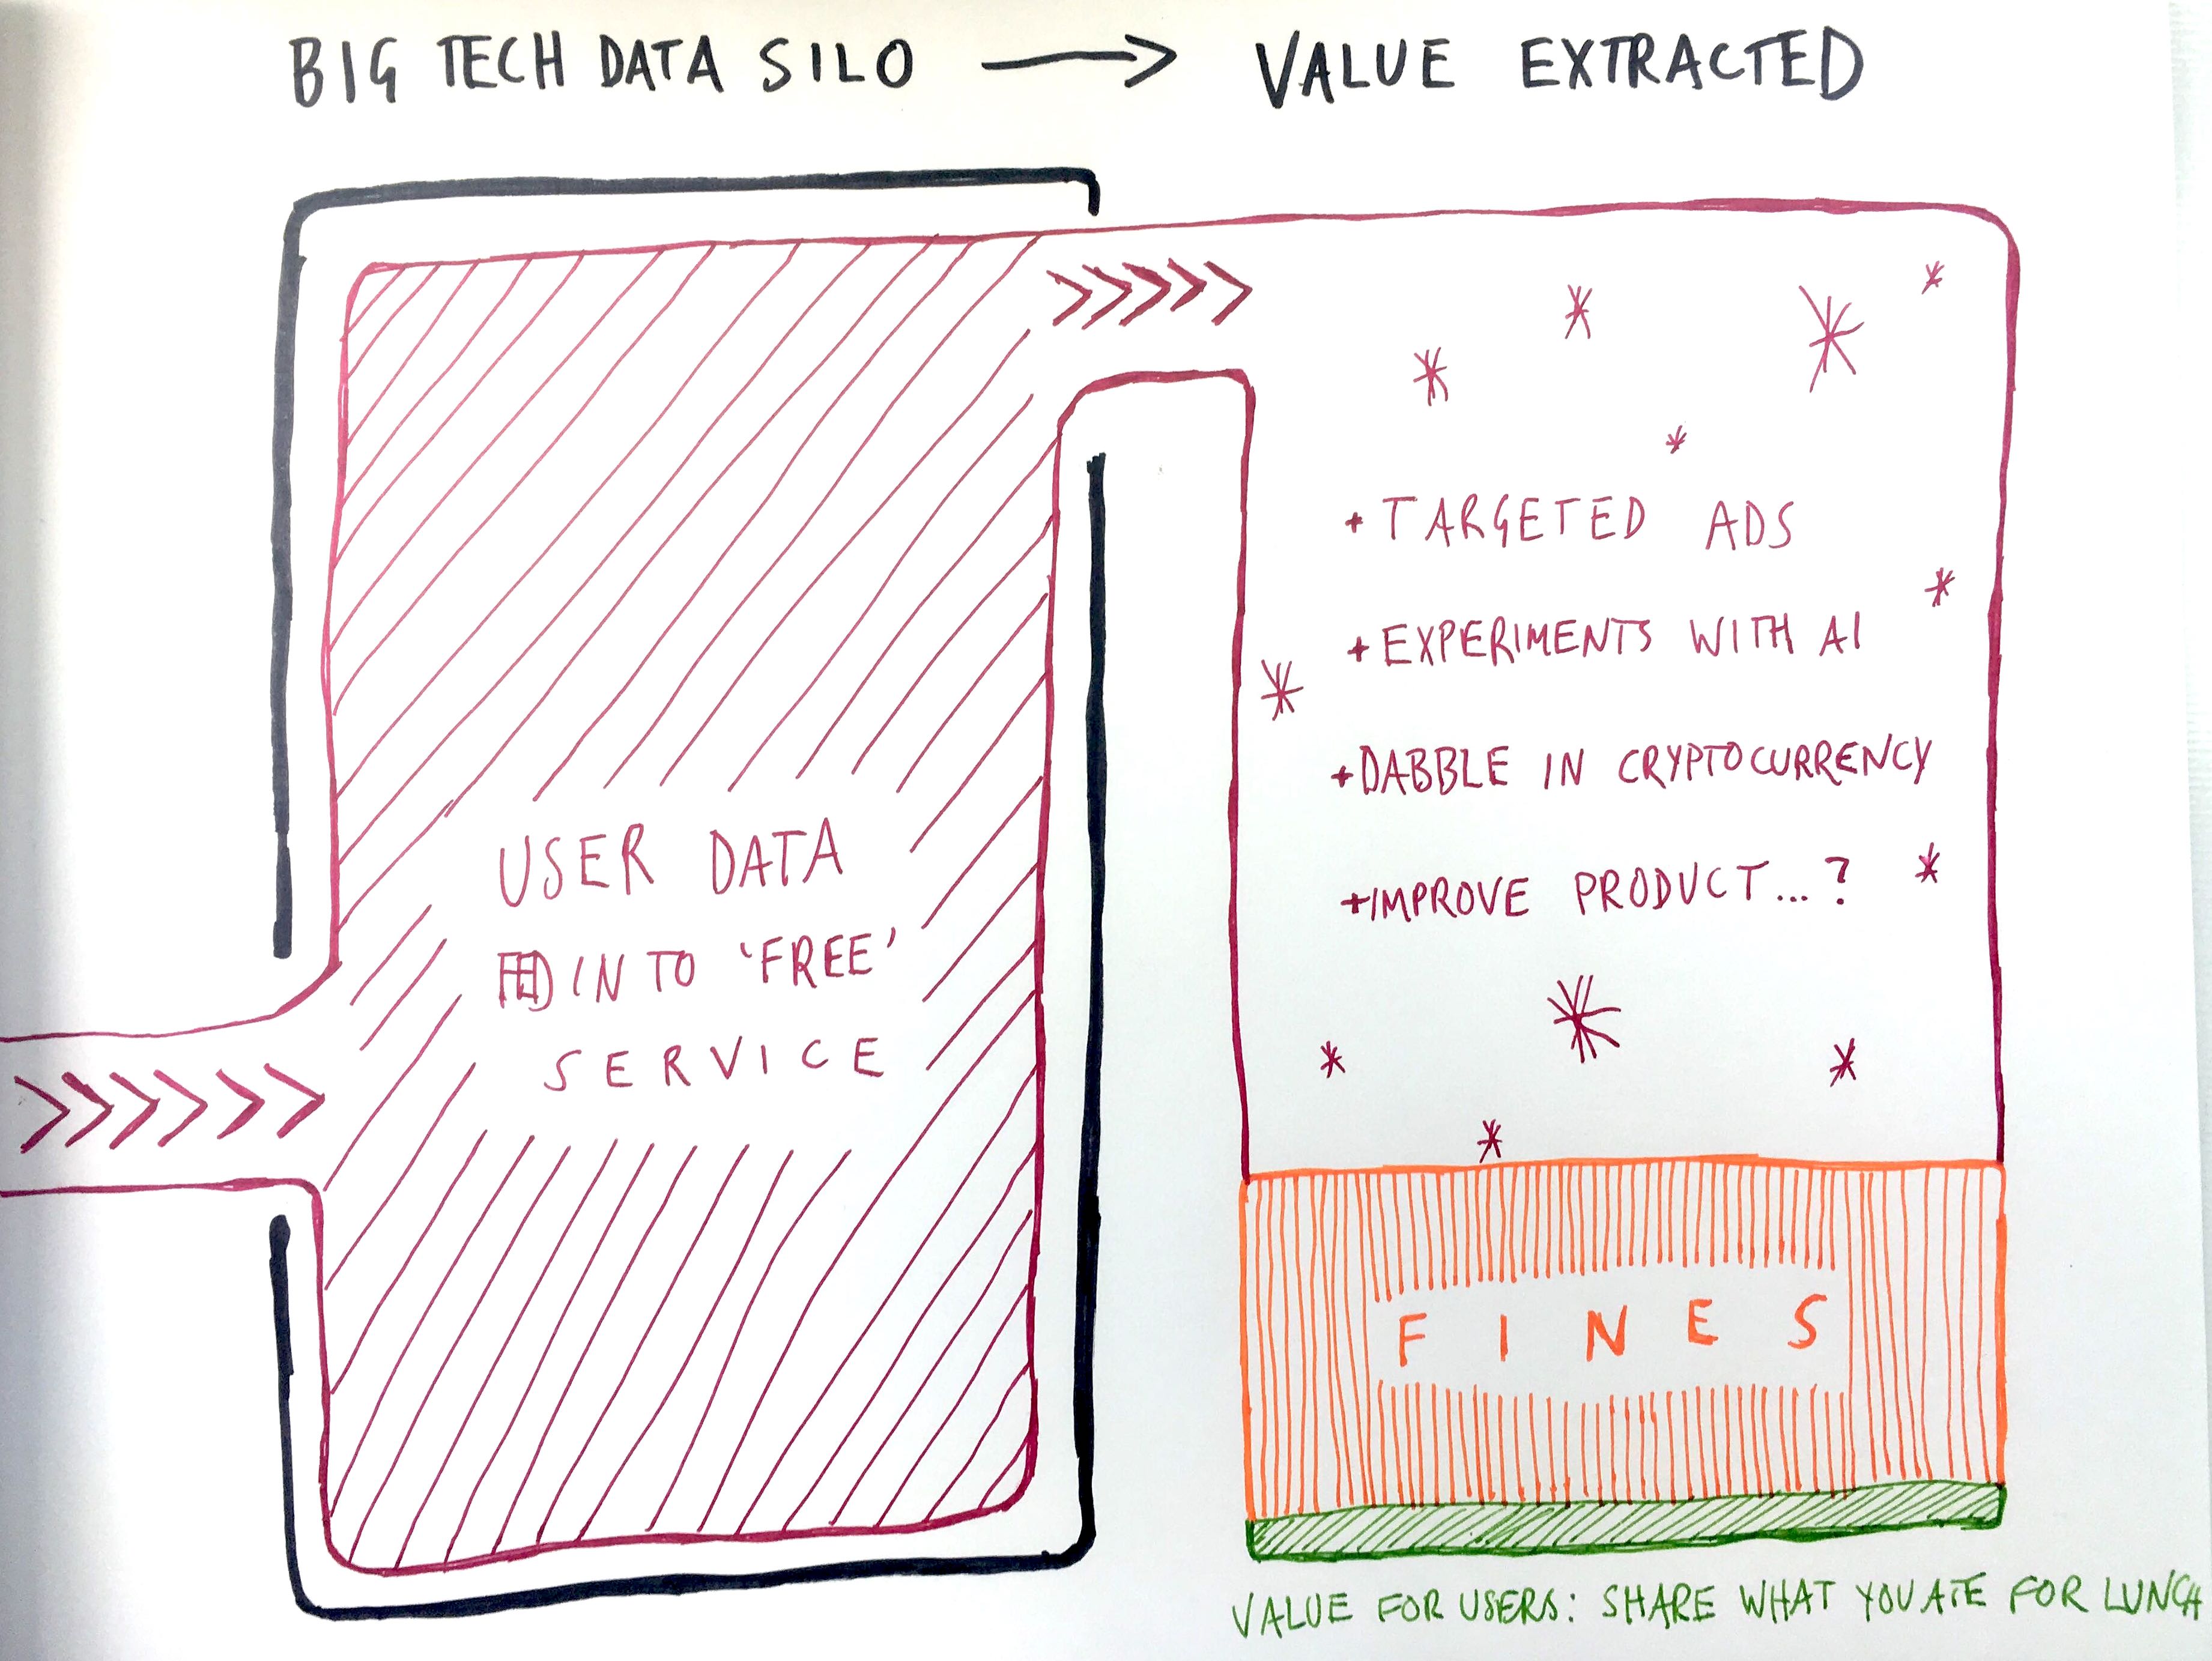 BIG TECH DATA SILO → VALUE EXTRACTED
USER DATA
FED INTO 'FREE'
SERVICE
+ TARGETED ADS
+ EXPERIMENTS WITH AI
+ DABBLE IN CRYPTOCURRENCY
+ IMPROVE PRODUCT...?
FINES
VALUE FOR USERS: SHARE WHAT YOU ATE FOR LUNCH